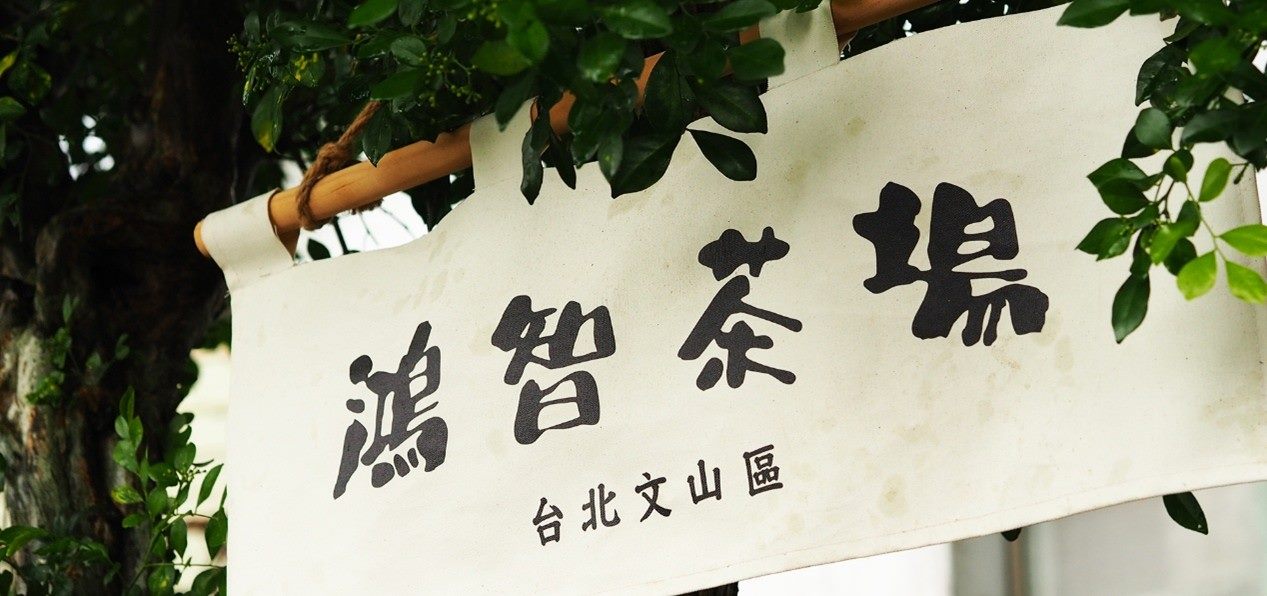 鴻智茶場
台北文山區